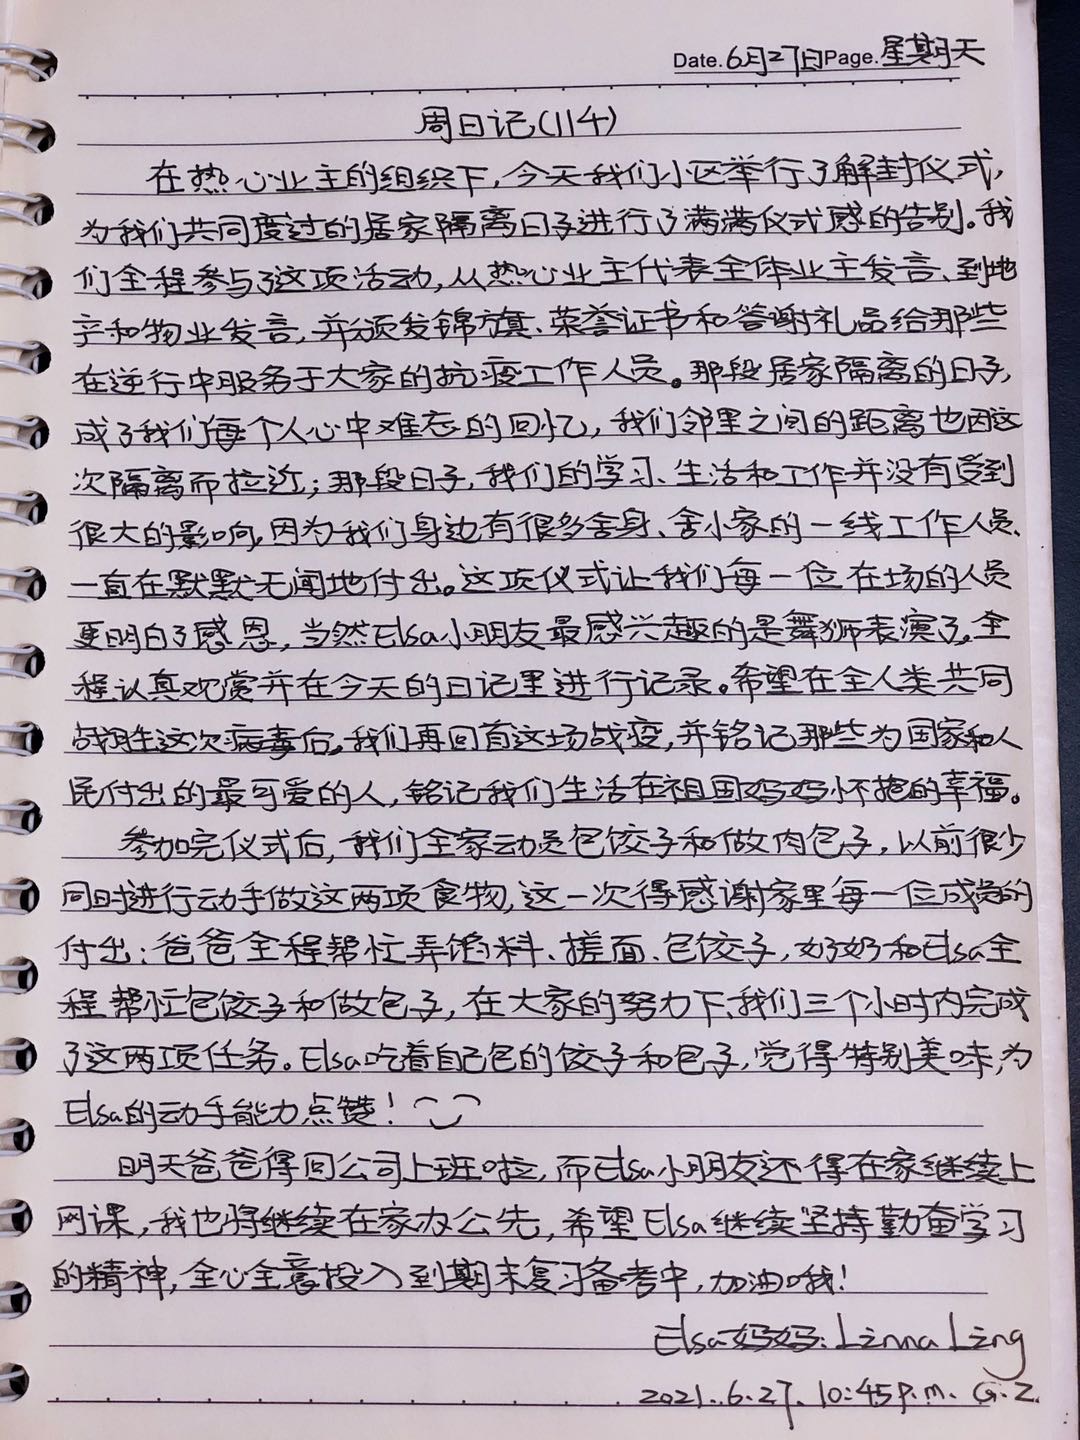 Date.6月27日Page.星期天
周日记(114)
在热心业主的组织下,今天我们小区举行了解封仪式,
为我们共同度过的居家隔离日子进行了满满仪式感的告别。我
们全程参与了这项活动,从热心业主代表全体业主发言、到地
产和物业发言,并颁发锦旗、荣誉证书和答谢礼品给那些
在逆行中服务于大家的抗疫工作人员。那段居家隔离的日子,
成了我们每个人心中难忘的回忆,我们邻里之间的距离也因这
次隔离而拉近;那段日子,我们的学习、生活和工作并没有受到
很大的影响,因为我们身边有很多舍身、舍小家的一线工作人员、
一直在默默无闻地付出。这项仪式让我们每一位在场的人员
更明白了感恩,当然Elsa小朋友最感兴趣的是舞狮表演了,全
程认真观赏并在今天的日记里进行记录。希望在全人类共同
战胜这次病毒后,我们再回首这场战疫,并铭记那些为国家和人
民付出的最可爱的人,铭记我们生活在祖国妈妈怀抱的幸福。
参加完仪式后,我们全家动员包饺子和做肉包子,以前很少
同时进行动手做这两项食物,这一次得感谢家里每一位成员的
付出:爸爸全程帮忙弄馅料、搓面、包饺子,奶奶和Elsa全
程帮忙包饺子和做包子,在大家的努力下,我们三个小时内完成
了这两项任务。Elsa吃着自己包的饺子和包子,觉得特别美味,为
Elsa的动手能力点赞!
明天爸爸得回公司上班啦,而Elsa小朋友还得在家继续上
网课,我也将继续在家办公先,希望Elsa继续坚持勤奋学习
的精神,全心全意投入到期末复习备考中,加油哦!
Elsa妈妈:Linna Ling
2021.6.27. 10:45p.m. G.Z.